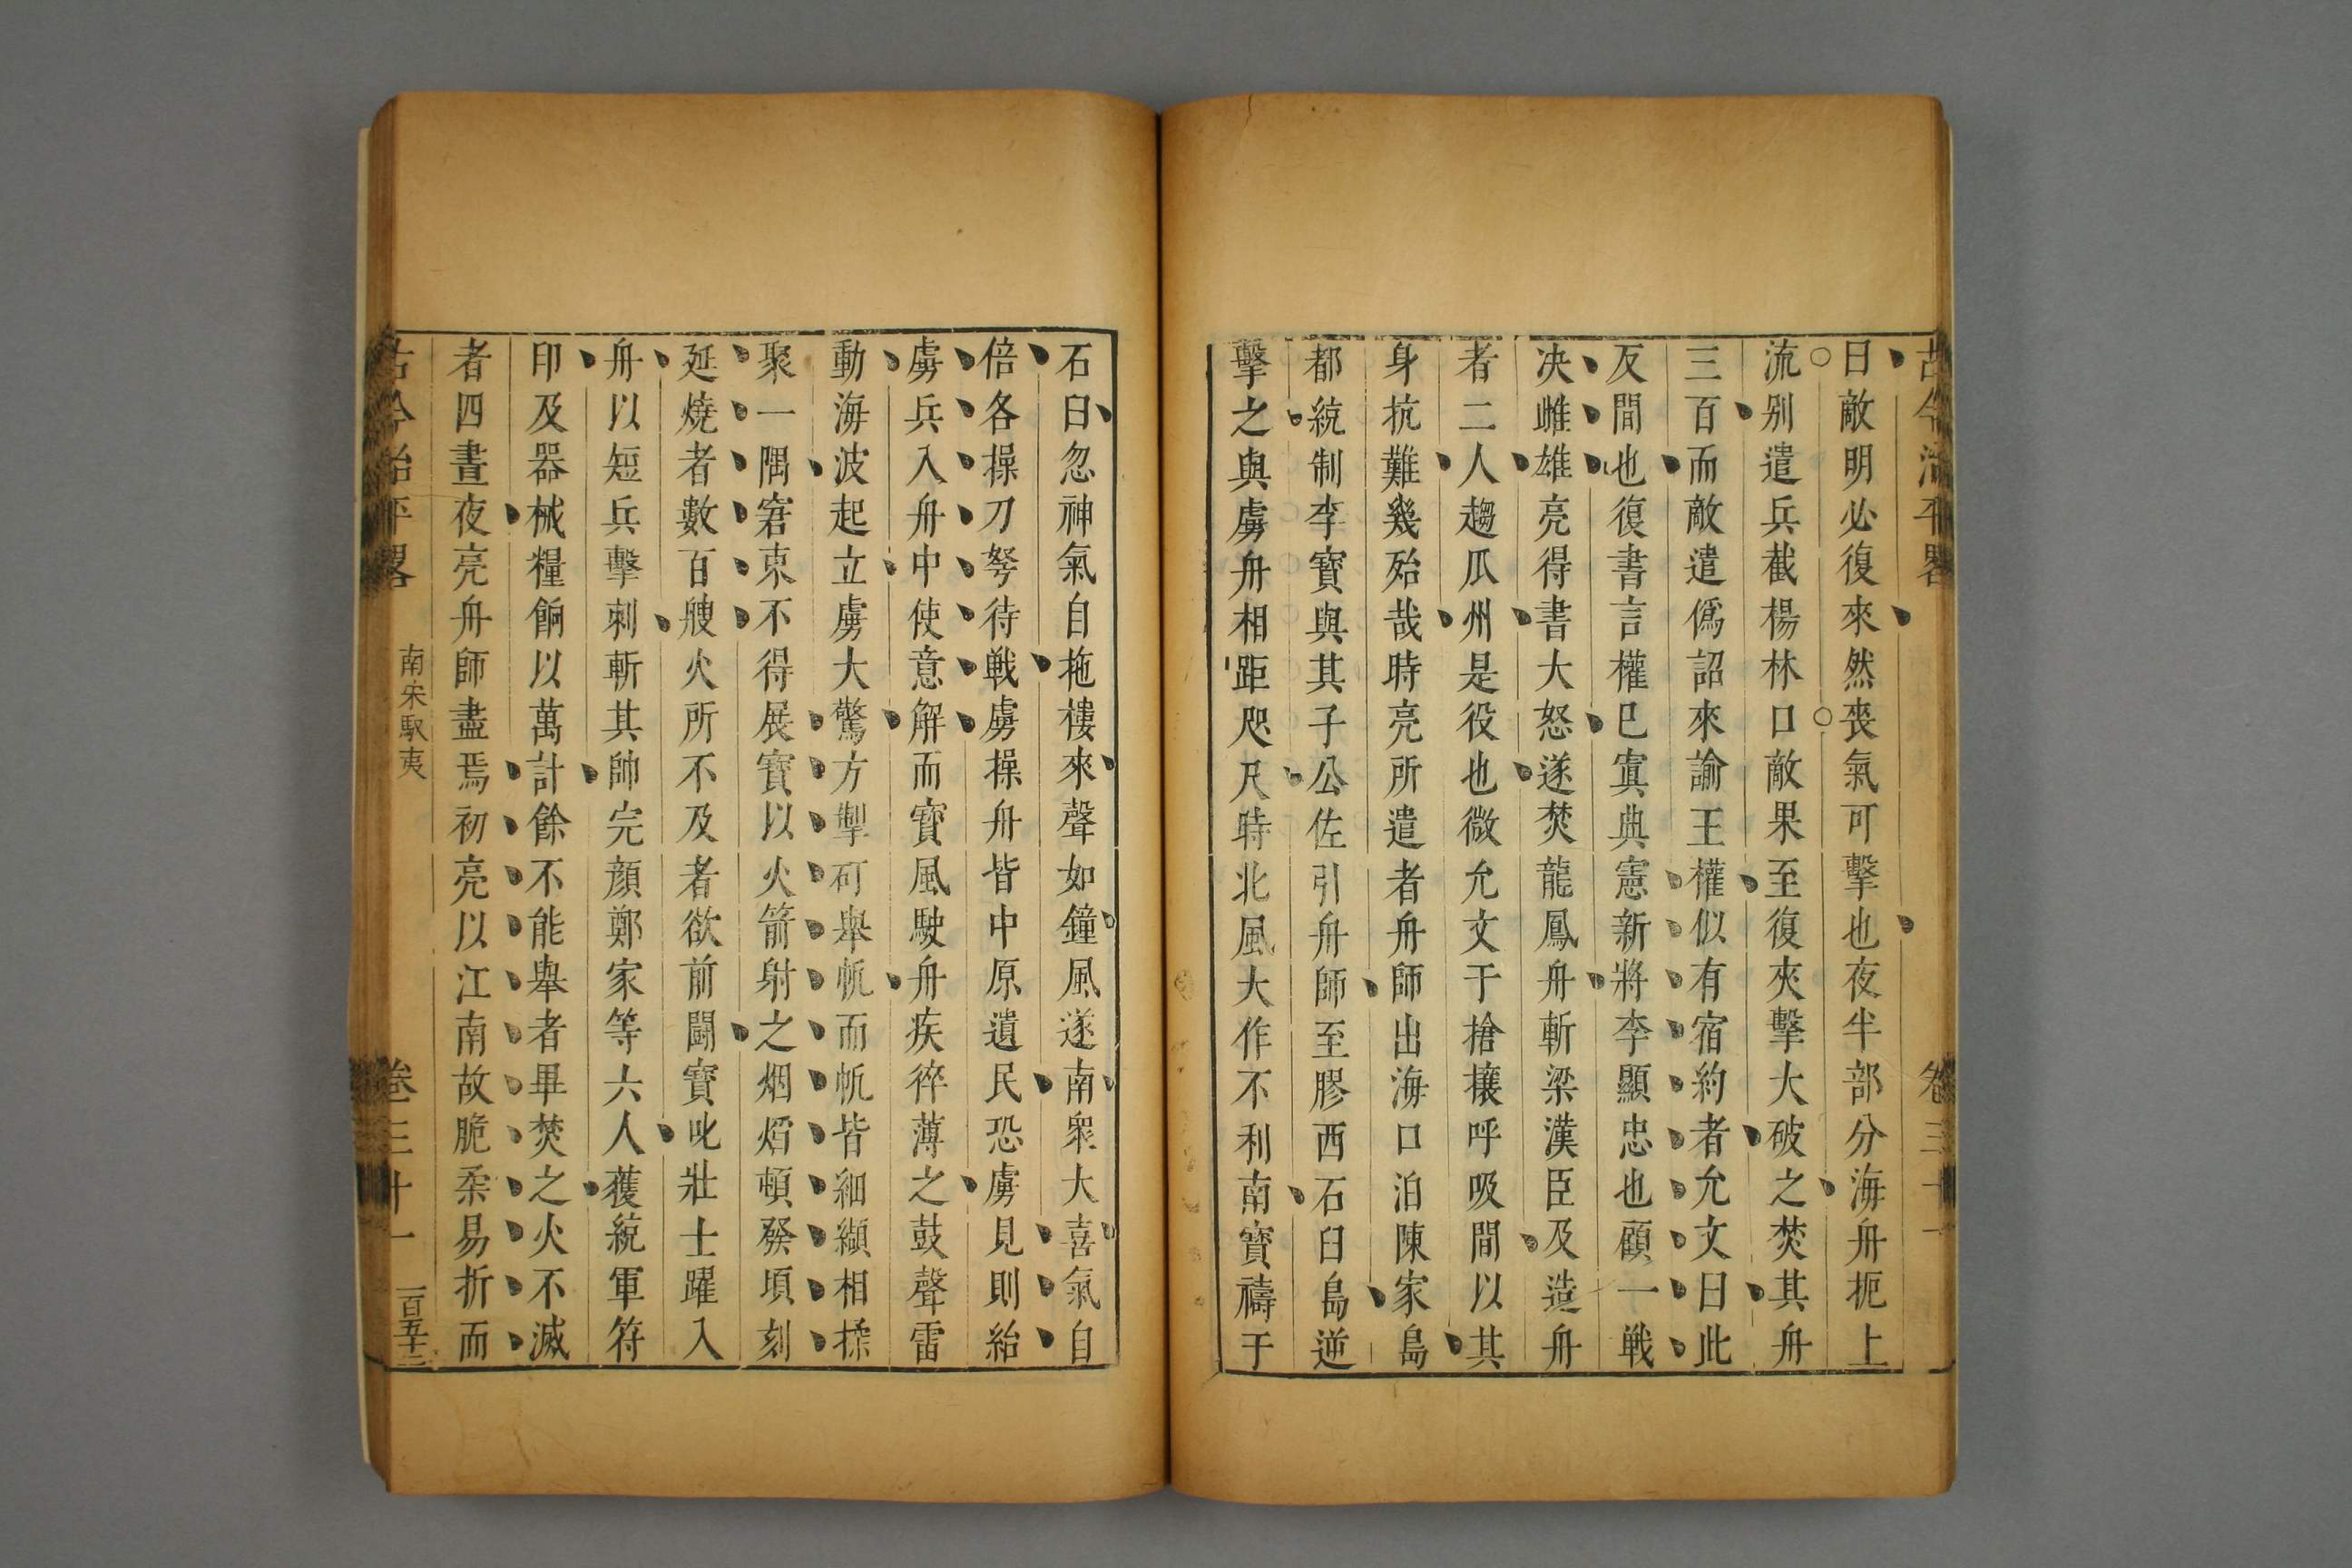 古今治平畧
卷三十一
曰敵明必復來然喪氣可擊也夜半部分海舟扼上
流别遣兵截楊林口敵果至復夾擊大破之焚其舟
三百而敵遣僞詔來諭王權似有宿約者允文曰此
反間也復書言權已寘典憲新將李顯忠也願一戦
决雌雄亮得書大怒遂焚龍鳳舟斬梁漢臣及造舟
者二人趨瓜州是役也微允文于搶攘呼吸間以其
身抗難幾殆哉時亮所遣者舟師出海口泊陳家島
都統制李寶與其子公佐引舟師至膠西石臼島逆
擊之與虜舟相距咫尺時北風大作不利南寶禱于
石臼忽神氣自拖樓來聲如鐘風遂南衆大喜氣自
倍各操刀弩待戦虜操舟皆中原遺民恐虜見則紿
虜兵入舟中使意解而寶風駛舟疾猝薄之鼓聲雷
動海波起立虜大驚方掣矴舉帆而帆皆細纈相揉
聚一隅窘束不得展寶以火箭射之烟焰頓發頃刻
延燒者數百艘火所不及者欲前闘寶叱壯士躍入
舟以短兵擊刺斬其帥完顔鄭家等六人獲統軍符
印及器械糧餉以萬計餘不能舉者畢焚之火不滅
者四晝夜亮舟師盡焉初亮以江南故脆柔易折而
古今治平畧
南宋馭夷
卷三十一
一百五十二